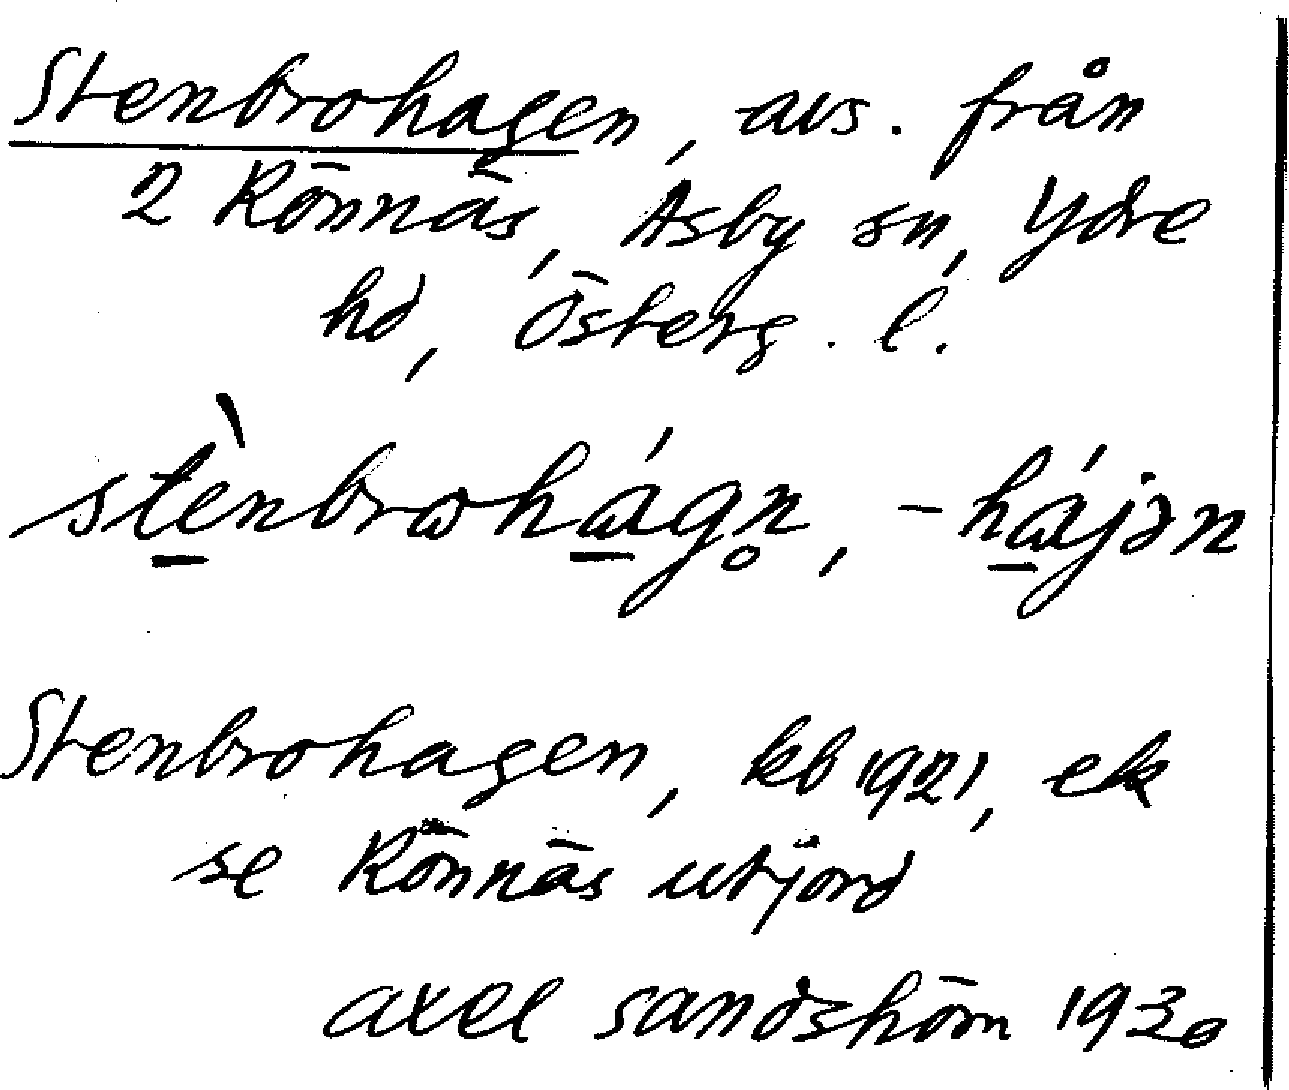 Stenbrohagen, avs. från
2 Rönnäs, Asby sn, Ydre
hd, Österg. l.
stènbrωhágn̥, -hájən
Stenbrohagen, kb 1921, ek
se Rönnäs utjord
axel sandström 1930